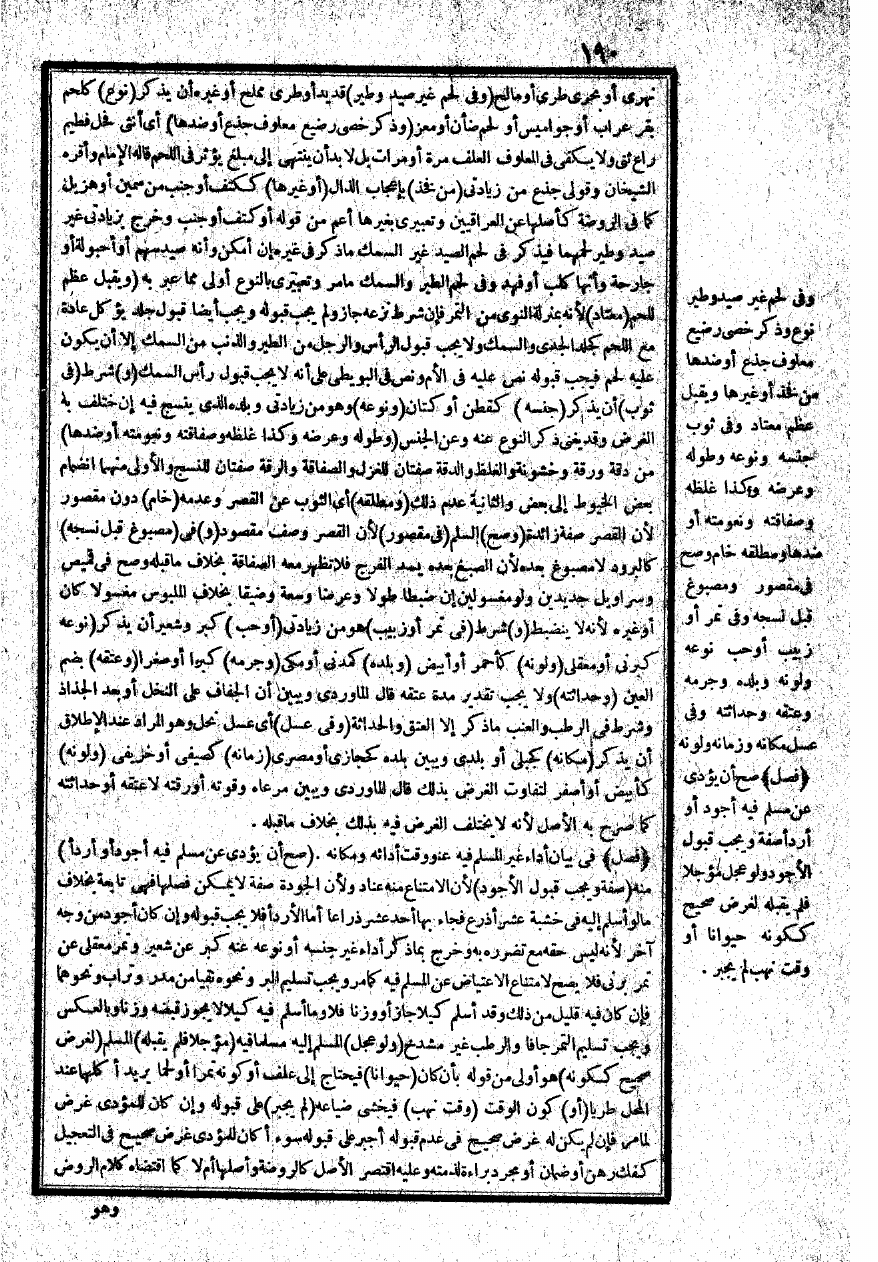 ١٩٠
نهرى أو بحرى طرى أو مالح (وفى لحم غير صيد وطير) قديد أو طرى مملح أو غيره أن يذكر (نوع) كلحم
بقر عراب أو جواميس أو لحم ضأن أو معز (وذكر خصى رضيع معلوف جذع أو ضدها) أى أنثى فحل فطيم
راع ثنى ولا يكفى فى المعلوف العلف مرة أو مرات بل لا بد أن ينتهى إلى مبلغ يؤثر فى اللحم قاله الإمام وأقره
الشيخان وقولى جذع من زيادتى (من فخذ) بإعجاب الذال (أو غيرها) ككتف أو جنب من سمين أو هزيل
كما فى الروضة كأصلها عن العراقيين وتعبيرى بغيرها أعم من قوله أو كتف أو جنب وخرج بزيادتى غير
صيد وطير لحمهما فيذكر فى لحم الصيد غير السمك ما ذكر فى غيره إن أمكن وأنه صيد سهم أو أحبولة أو
جارحة وأنها كلب أو فهد وفى لحم الطير والسمك ما مر وتعبيرى بالنوع أولى مما عبر به (ويقبل عظم
للحم (معتاد) لأنه بمنزلة النوى من التمر فإن شرط نزعه جاز ولم يجب قبوله ويجب أيضا قبول جلد يؤكل عادة
مع اللحم كجلد الجدى والسمك ولا يجب قبول الرأس والرجل من الطير والذنب من السمك إلا أن يكون
عليه لحم فيجب قبوله نص عليه فى الأم ونص فى البويطى على أنه لا يجب قبول رأس السمك (و) شرط (فى
ثوب) أن يذكر (جنسه) كقطن أو كتان (ونوعه) وهو من زيادتى وبلده الذى ينسج فيه إن ختلف به
الغرض وقد يغنى ذكر النوع عنه وعن الجنس (وطوله وعرضه وكذا غلظه وصفاقته ونعومته أو ضدها)
من دقة ورقة وخشونة والغلظ والدقة صفتان للغزل والصفاقة والرقة صفتان للنسج والأولى منهما انضمام
بعض الخيوط إلى بعض والثانية عدم ذلك (ومطلقه) أى الثوب عن القصر وعدمه (خام) دون مقصور
لأن القصر صفة زائدة (وصح) السلم (فى مقصور) لأن القصر وصف مقصود (و) فى (مصبوغ قبل نسجه)
كالبرود لا مصبوغ بعده لأن الصبغ بعده يسد الفرج فلا تظهر معه الصفاقة بخلاف ما قبله وصح فى قميص
وسراويل جديدين ولو مغسولين إن ضبطا طولا وعرضا وسعة وضيقا بخلاف الملبوس مغسولا كان
أو غيره لأنه لا ينضبط (و) شرط (فى تمر أو زبيب) هو من زيادتى (أو حب) كبر وشعير أن يذكر (نوعه
كبرنى أو معقلى (ولونه) كأحمر أو أبيض (وبلده) كمدنى أو مكى (وجرمه) كبرا أو صغرا (وعتقه) بضم
العين (وحداثته) ولا يجب تقدير مدة عتقه قال الماوردى ويبين أن الجفاف على النخل أو بعد الجذاذ
وشرط فى الرطب والعنب ما ذكر إلا العتق والحداثة (وفى عسل) أى عسل نحل وهو المراد عند الإطلاق
أن يذكر (مكانه) كجبلى أو بلدى ويبين بلده كحجازى أو مصرى (زمانه) كصيفى أو خريفى (ولونه)
كأبيض أو أصفر لتفاوت الغرض بذلك قال الماوردى ويبين مرعاه وقوته أو رقته لا عتقه أو حداثته
كما صرح به الأصل لأنه لا يختلف الغرض فيه بذلك بخلاف ما قبله .
﴿فصل﴾ فى بيان أداء غير المسلم فيه عنه ووقت أدائه ومكانه . (صح أن يؤدى عن مسلم فيه أجود أو أردأ)
منه (صفة ويجب قبول الأجود) لأن الامتناع منه عناد ولأن الجودة صفة لا يمكن فصلها فهى تابعة بخلاف
ما لو أسلم إليه فى خشبة عشرة أذرع فجاء بها أحد عشر ذراعا أما الأردأ فلا يجب قبوله وإن كان أجود من وجه
آخر لأنه ليس حقه مع تضرره به وخرج بما ذكر أداء غير جنسه أو نوعه عنه كبر عن شعير وتمر معقلى عن
تمر برنى فلا يصح لامتناع الاعتياض عن المسلم فيه كما مر ويجب تسليم البر ونحوه نقيا من مدر وتراب ونحوهما
فإن كان فيه قليل من ذلك وقد أسلم كيلا جاز أو وزنا فلا وما أسلم فيه كيلا لا يجوز قبضه وزنا وبالعكس
ويجب تسليم التمر جافا والرطب غير مشدخ (ولو عجل) المسلم إليه مسلما فيه (مؤجلا فلم يقبله) المسلم (لغرض
صحيح ككونه) هو أولى من قوله بأن كان (حيوانا) فيحتاج إلى علف أو كونه تمرا أو لحما يريد أكلها عند
المحل طريا (أو) كون الوقت (وقت نهب) فيخشى ضياعه (لم يجبر) على قبوله وإن كان للمؤدى غرض
لما مر فإن لم يكن له غرض صحيح فى عدم قبوله أجبر على قبوله سواء أكان للمؤدى غرض صحيح فى التعجيل
كفك رهن أو ضمان أو مجرد براءة لذمته وعليه اقتصر الأصل كالروضة وأصلها أم لا كما اقتضاه كلام الروض
وهو
وفى لحم غير صيد وطير
نوع وذكر خصى رضيع
معلوف جذع أو ضدها
من فخذ أو غيرها ويقبل
عظم معتاد وفى ثوب
جنسه ونوعه وطوله
وعرضه وكذا غلظه
وصفاقته ونعومته أو
ضدها ومطلقه خام وصح
فى مقصور ومصبوغ
قبل نسجه وفى تمر أو
زبيب أو حب نوعه
ولونه وبلده وجرمه
وعتقه وحداثته وفى
عسل مكانه وزمانه ولونه
﴿فصل﴾ صح أن يؤدى
عن مسلم فيه أجود أو
أردأ صفة ويجب قبول
الأجود ولو عجل مؤجلا
فلم يقبله لغرض صحيح
ككونه حيوانا أو
وقت نهب لم يجبر .